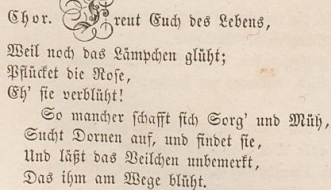 Chor. Freut Euch des Lebens,
Weil noch das Lämpchen glüht;
Pflücket die Rose,
Eh' sie verblüht!
So mancher schafft sich Sorg' und Müh,
Sucht Dornen auf, und findet sie,
Und läßt das Veilchen unbemerkt,
Das ihm am Wege blüht.